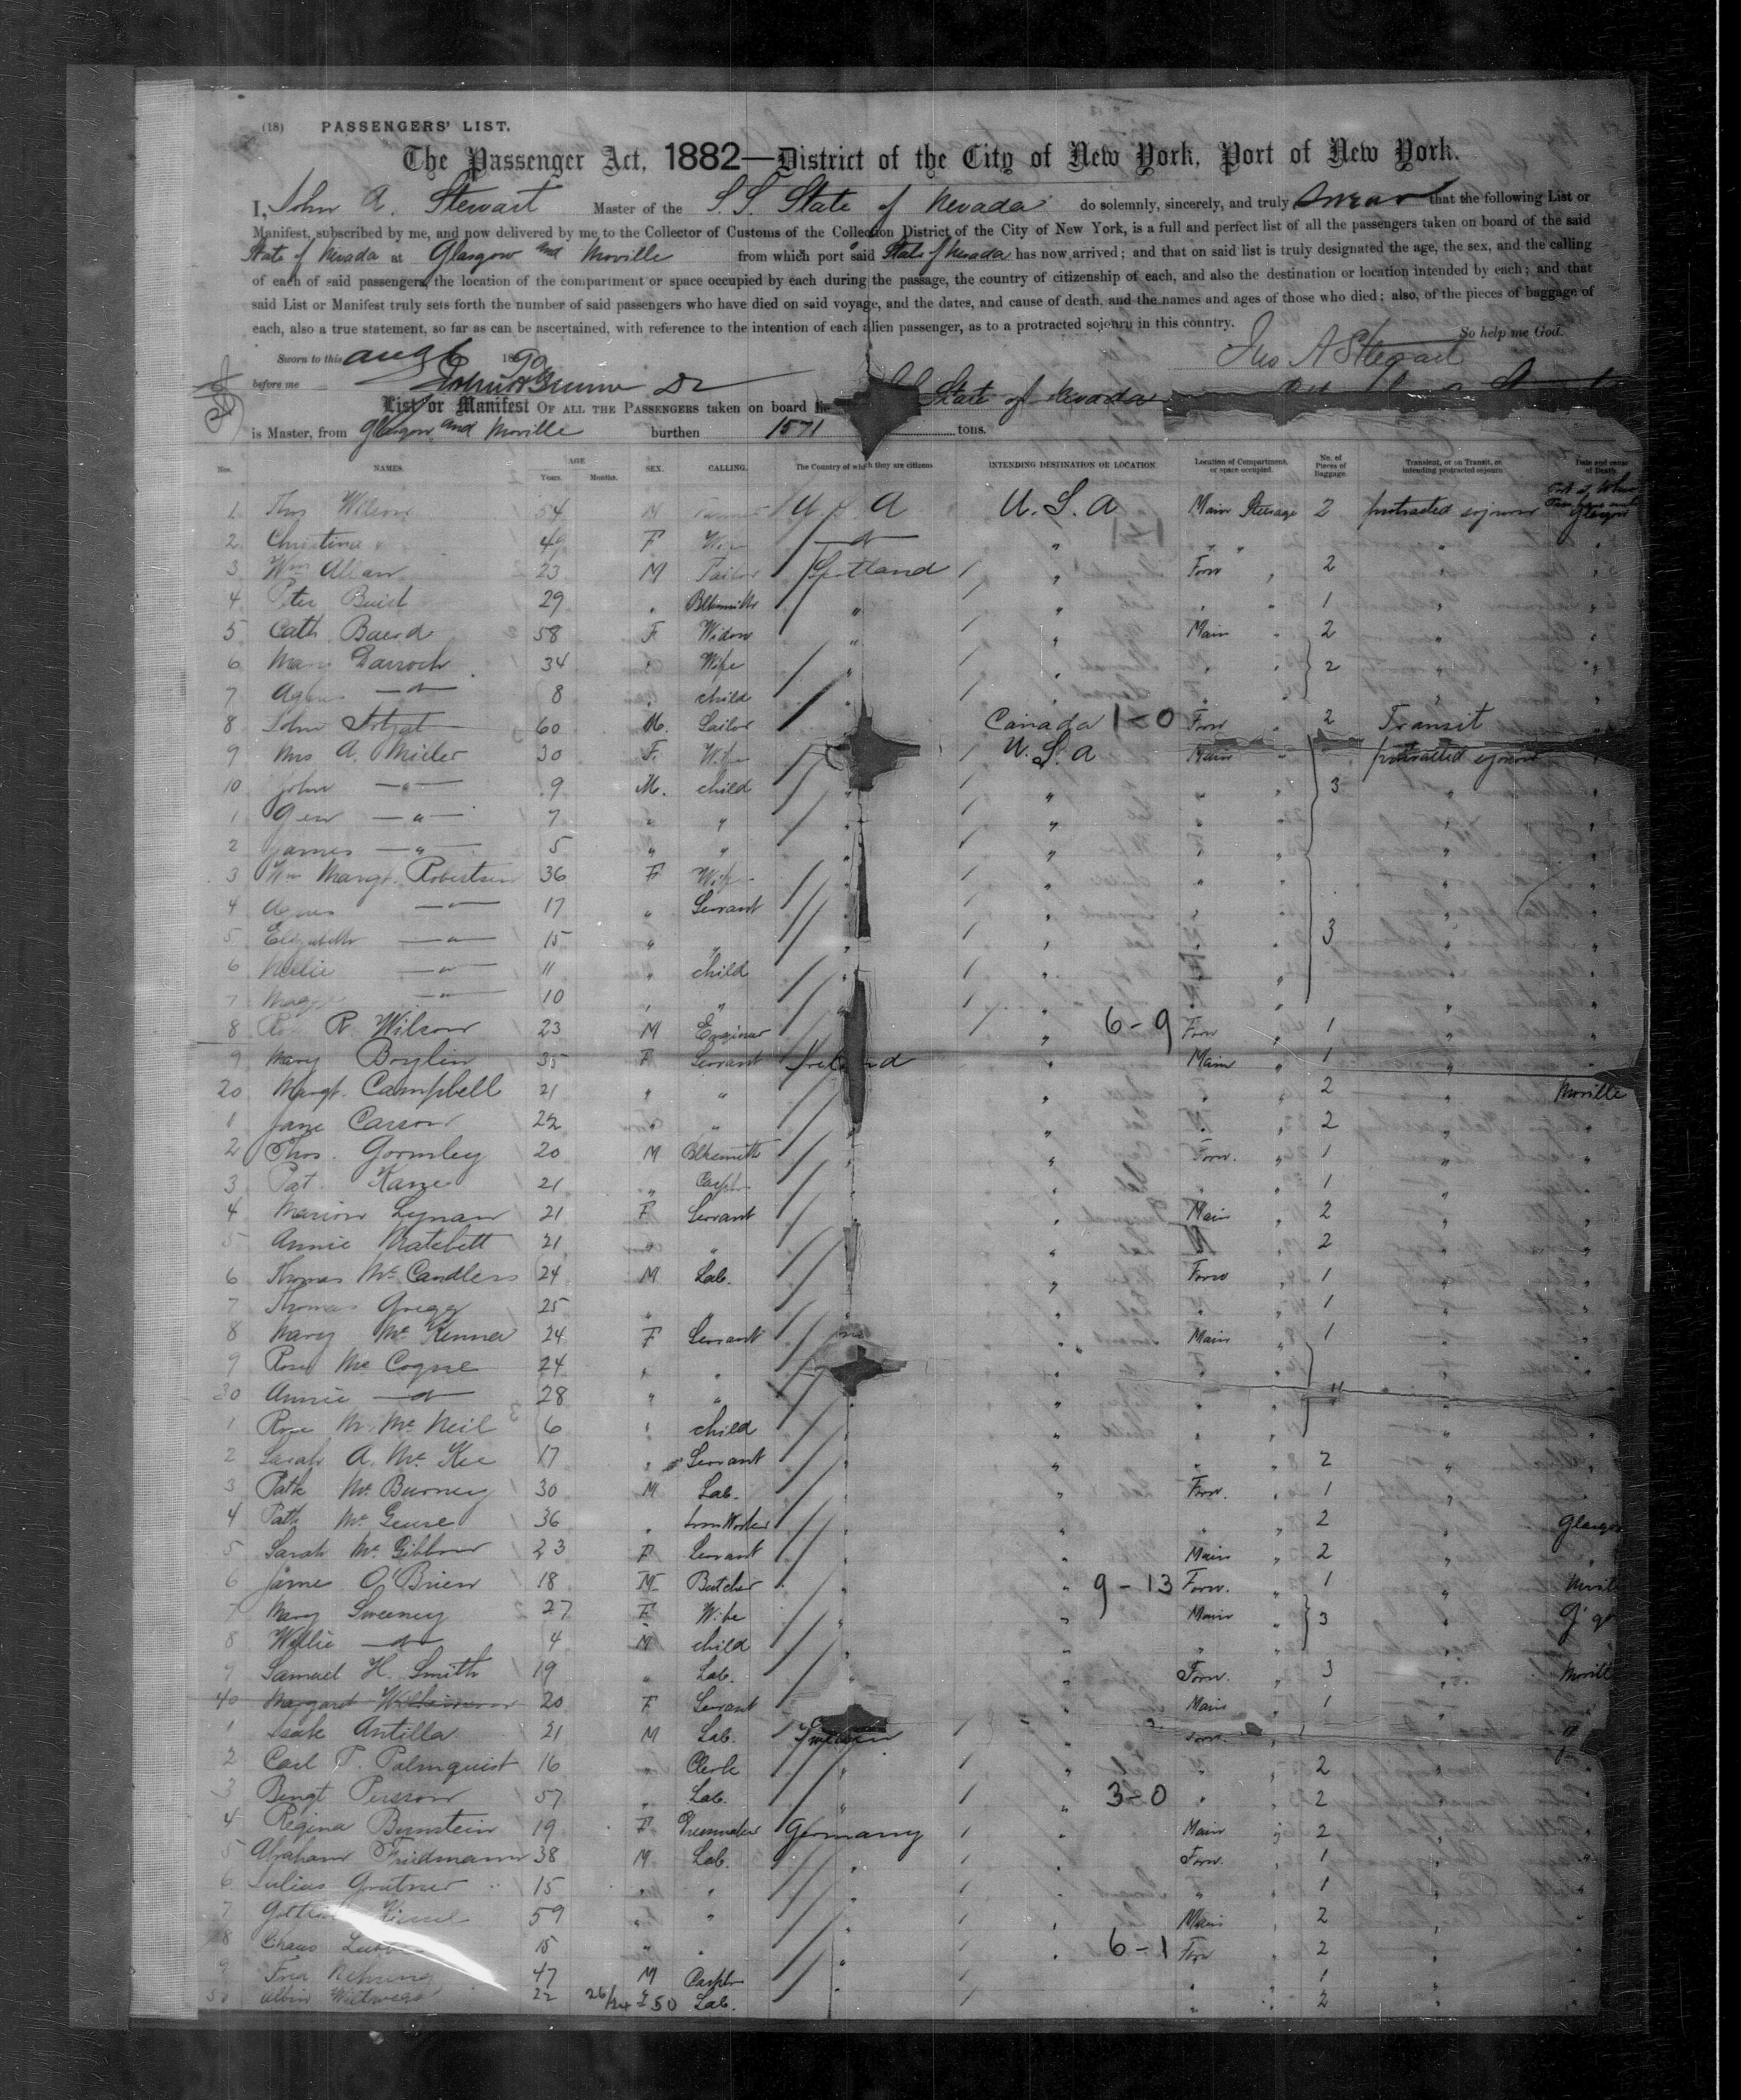 (18) PASSENGERS' LIST.
The Passenger Act, 1882—District of the City of New York, Port of New York.
I, John A. Stewart Master of the S.S. State of Nevada do solemnly, sincerely, and truly swear that the following List or
Manifest, subscribed by me, and now delivered by me to the Collector of Customs of the Collection District of the City of New York, is a full and perfect list of all the passengers taken on board of the said
State of Nevada at Glasgow and Moville from which port said State of Nevada has now arrived; and that on said list is truly designated the age, the sex, and the calling
of each of said passengers, the location of the compartment or space occupied by each during the passage, the country of citizenship of each, and also the destination or location intended by each; and that
said List or Manifest truly sets forth the number of said passengers who have died on said voyage, and the dates, and cause of death, and the names and ages of those who died; also, of the pieces of baggage of
each, also a true statement, so far as can be ascertained, with reference to the intention of each alien passenger, as to a protracted sojourn in this country. So help me God.
Sworn to this Aug 6 1890 Jno A Stewart
before me
List or Manifest OF ALL THE PASSENGERS taken on board the SS State of Nevada
is Master, from Glasgow and Moville burthen 1571 tons.
Nos. NAMES. AGE Years. Months. SEX. CALLING. The Country of which they are citizens INTENDING DESTINATION OR LOCATION. Location of Compartment, or space occupied. No. of Pieces of Baggage. Transient, or on Transit, or intending protracted sojourn. Date and cause of Death.
1 Thos Wilson 54 M U.S.A U.S.A Main Steerage 2 protracted sojourn Glasgow
2 Christina 49 F Wife —"— " " " "
3 Wm Allan 23 M Tailor Scotland " Forw " 2 "
4 Peter 29 " Blksmith " " " " 1 "
5 Cath Baird 58 F Widow " " Main " 2 "
6 Mary Darroch 34 " Wife " " " " 2 "
7 Agnes —"— 8 " child " " " " "
8 John 60 M. Sailor Canada 1-0 Forw " 2 Transit
9 Mrs A. Miller 30 F. Wife U.S.A Main " protracted sojourn
10 John —"— 9 M. child " " " " 3 "
1 —"— 7 " " " " " " "
2 James —"— 5 " " " " " " "
3 Margt. Robertson 36 F Wife " " " " "
4 Agnes —"— 17 " Servant " " " " "
5 Elizabeth —"— 15 " " " " " " 3 "
6 Nellie —"— 11 " child " " " " "
7 Maggie —"— 10 " " " " " " "
8 R. Wilson 23 M Enginer " " 6-9 Forw " 1 "
9 Mary Boylin 35 F Servant Ireland " Main " 1 "
20 Margt. Campbell 21 " " " " " " 2 " Moville
1 Jane Carson 22 " " " " " " 2 " "
2 Thos. Gormley 20 M Blksmith " " Forw. " 1 " "
3 Pat. Kane 21 " Carptr " " " " 1 " "
4 Marion Lynan 21 F Servant " " Main " 2 " "
5 Annie Matchett 21 " " " " " " 2 " "
6 Thomas Mc Candless 24 M Lab. " " Forw " 1 " "
7 Thomas Gregg 25 " " " " " " 1 " "
8 Mary Mc Kenna 24 F Servant " " Main " 1 " "
9 Rose Mc Cogne 24 " " " " " " " "
30 Annie —"— 28 " " " " " " " " "
1 Rose M. Mc Neil 6 " child " " " " " "
2 Sarah A. Mc Kee 17 " Servant " " " " 2 " "
3 Patk Mc Burney 30 M Lab. " " Forw. " 1 " "
4 Patk Mc 36 " Iron Worker " " " " 2 " Glasgow
5 Sarah Mc Gibbon 23 F Servant " " Main " 2 " "
6 Jame O'Brien 18 M Butcher " " 9-13 Forw. " 1 "
7 Mary Sweeney 27 F Wife " " Main " 3 "
8 Willie —"— 4 M child " " " " "
9 Samuel H. Smith 19 " Lab. " " Forw. " 3 " Moville
40 Margard 20 F Servant Main " 1 "
1 Isak Antilla 21 M Lab. Sweden " Forw. "
2 Carl P. Palmquist 16 " Clerk " " " " 2 "
3 Bengt Persson 57 " Lab. " " 3-0 " " 2 "
4 Regina Bernstein 19 F Germany " Main " 2 "
5 Abraham Friedmann 38 M Lab. " " Forw. " 1 "
6 Julius 15 " " " " " " 1 "
7 59 " " " " Main " 2 "
8 15 " " " " 6-1 Forw " 2 "
9 Fred Nehring 47 M Carptr " " " " 1 "
50 Albin 22 26/24 50 Lab. " " " 2 "